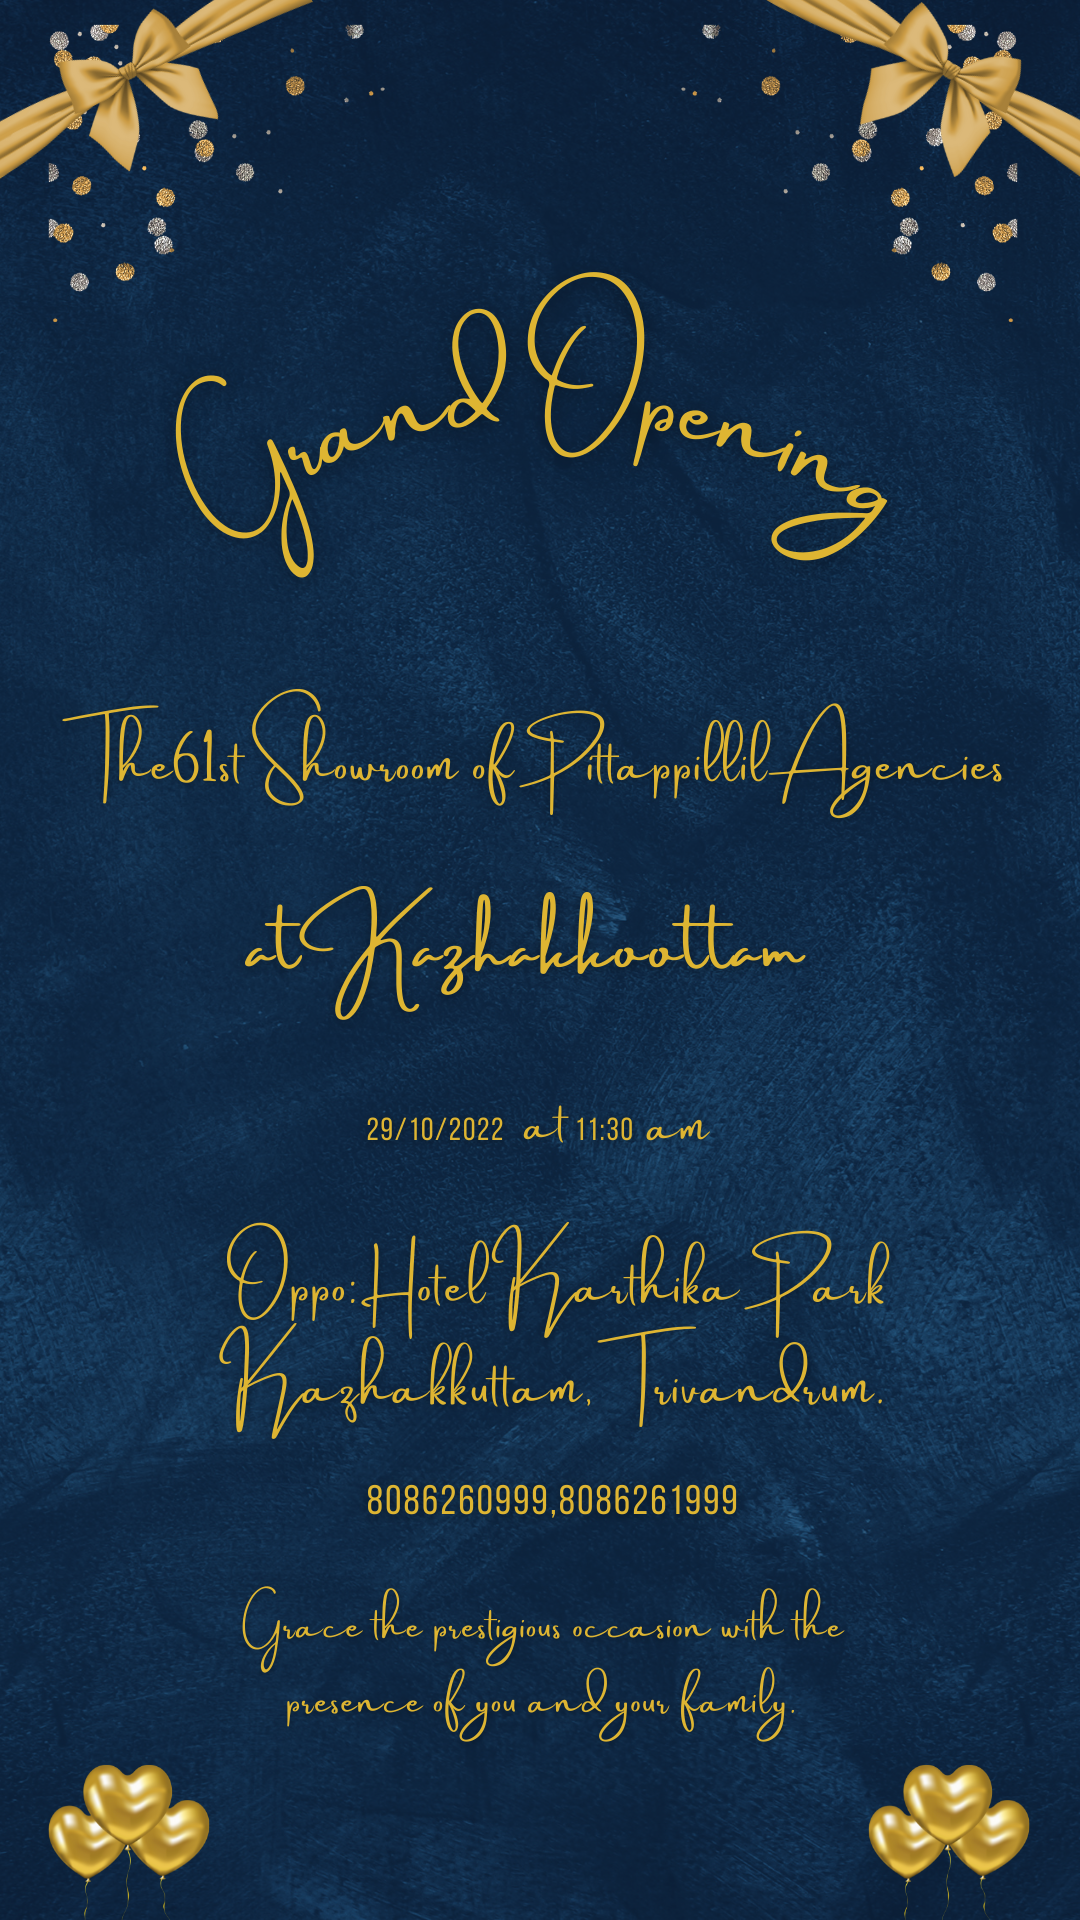 Grand Opening
The 61st Showroom of Pittappillil Agencies
at Kazhakkoottam
29/10/2022 at 11:30 am
Oppo: Hotel Karthika Park
Kazhakkuttam, Trivandrum.
8086260999,8086261999
Grace the prestigious occasion with the
presence of you and your family.